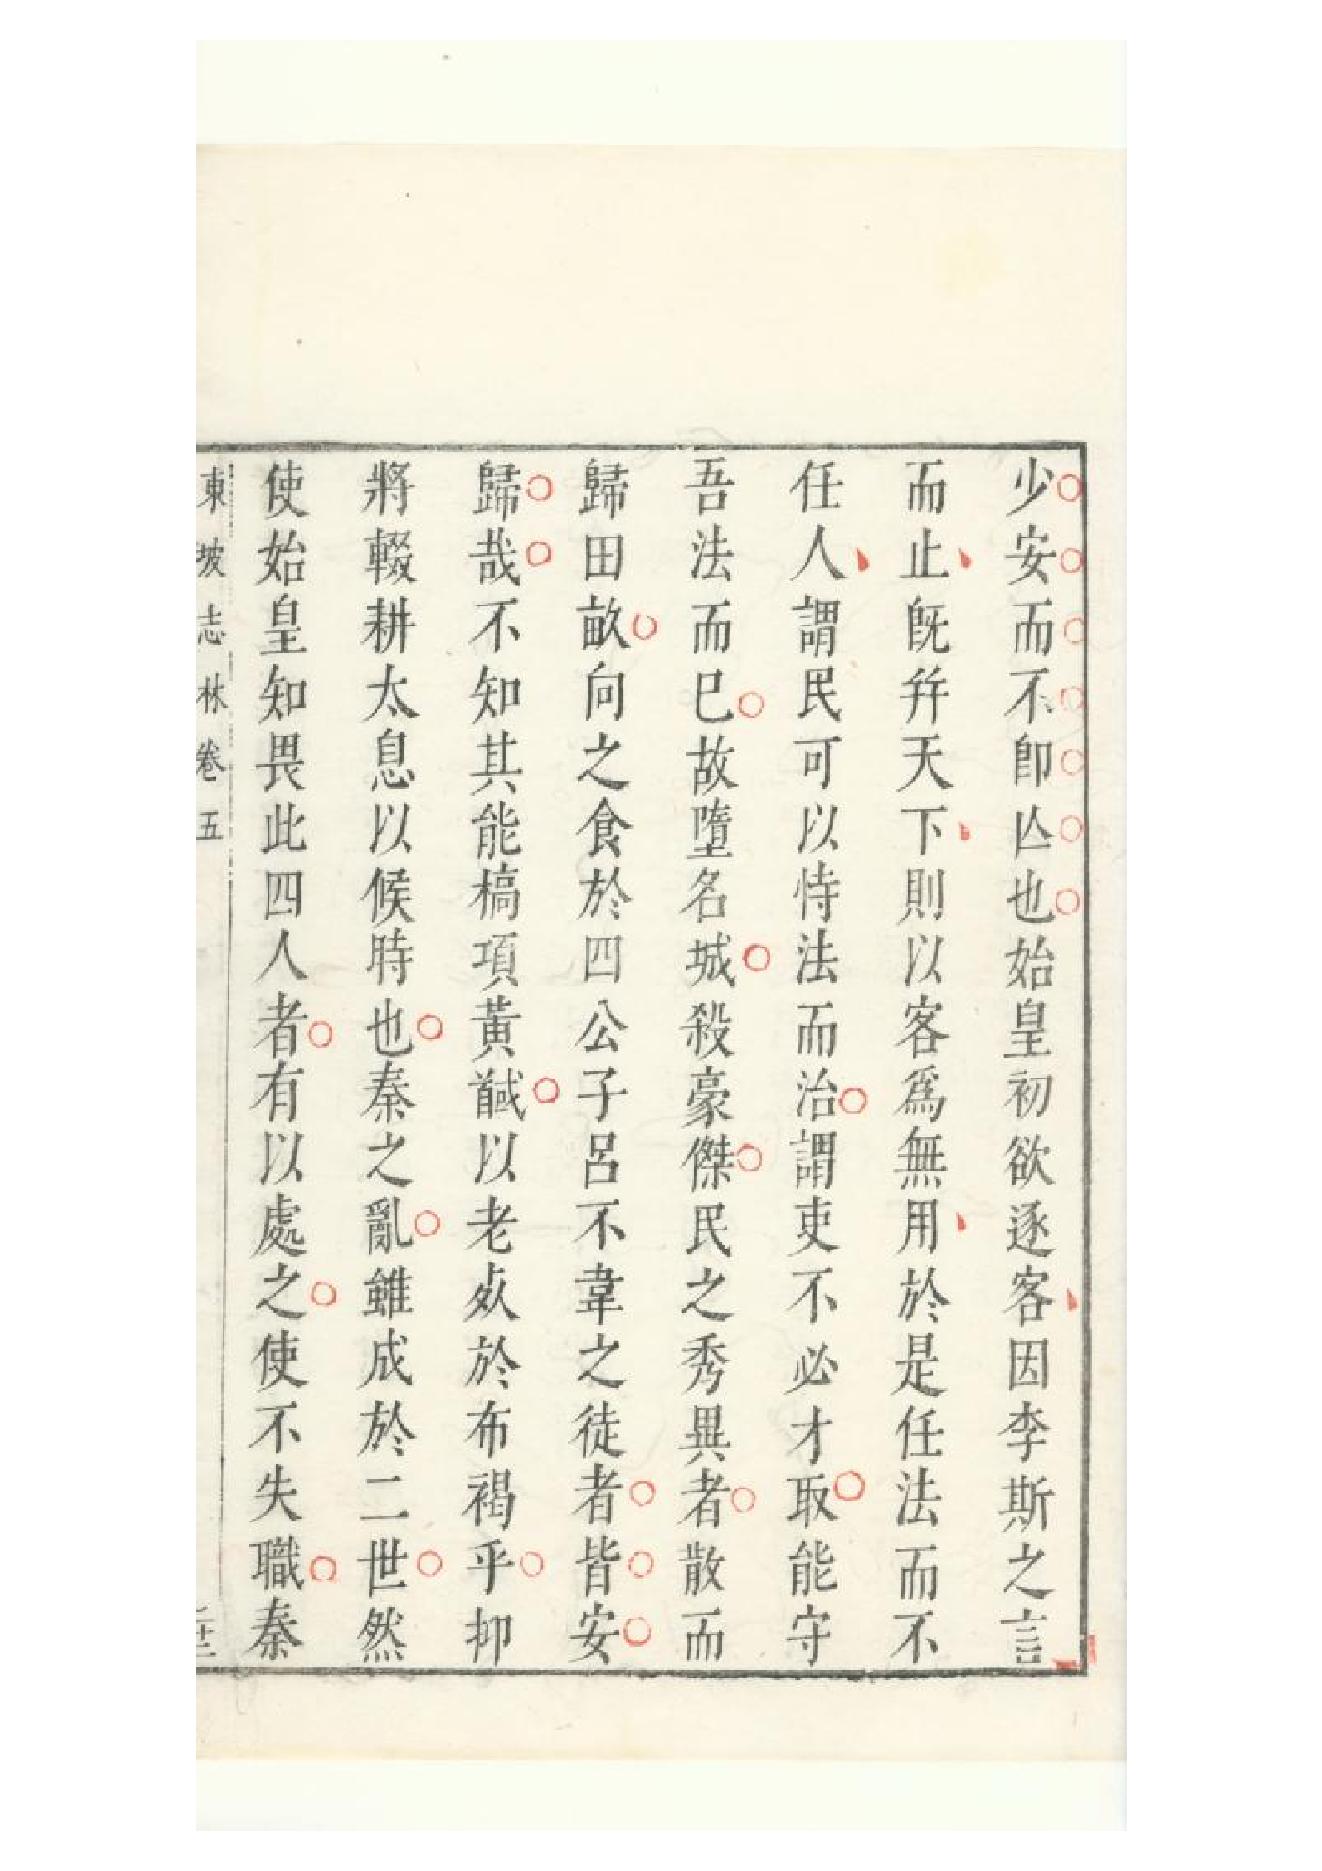 少安而不卽亾也始皇初欲逐客因李斯之言
而止旣幷天下則以客爲無用於是任法而不
任人謂民可以恃法而治謂吏不必才取能守
吾法而已故墮名城殺豪傑民之秀異者散而
歸田畝向之食於四公子呂不韋之徒者皆安
歸哉不知其能槁項黃馘以老㱙於布褐乎抑
將輟耕太息以候時也秦之亂雖成於二世然
使始皇知畏此四人者有以處之使不失職秦
東坡志林卷五